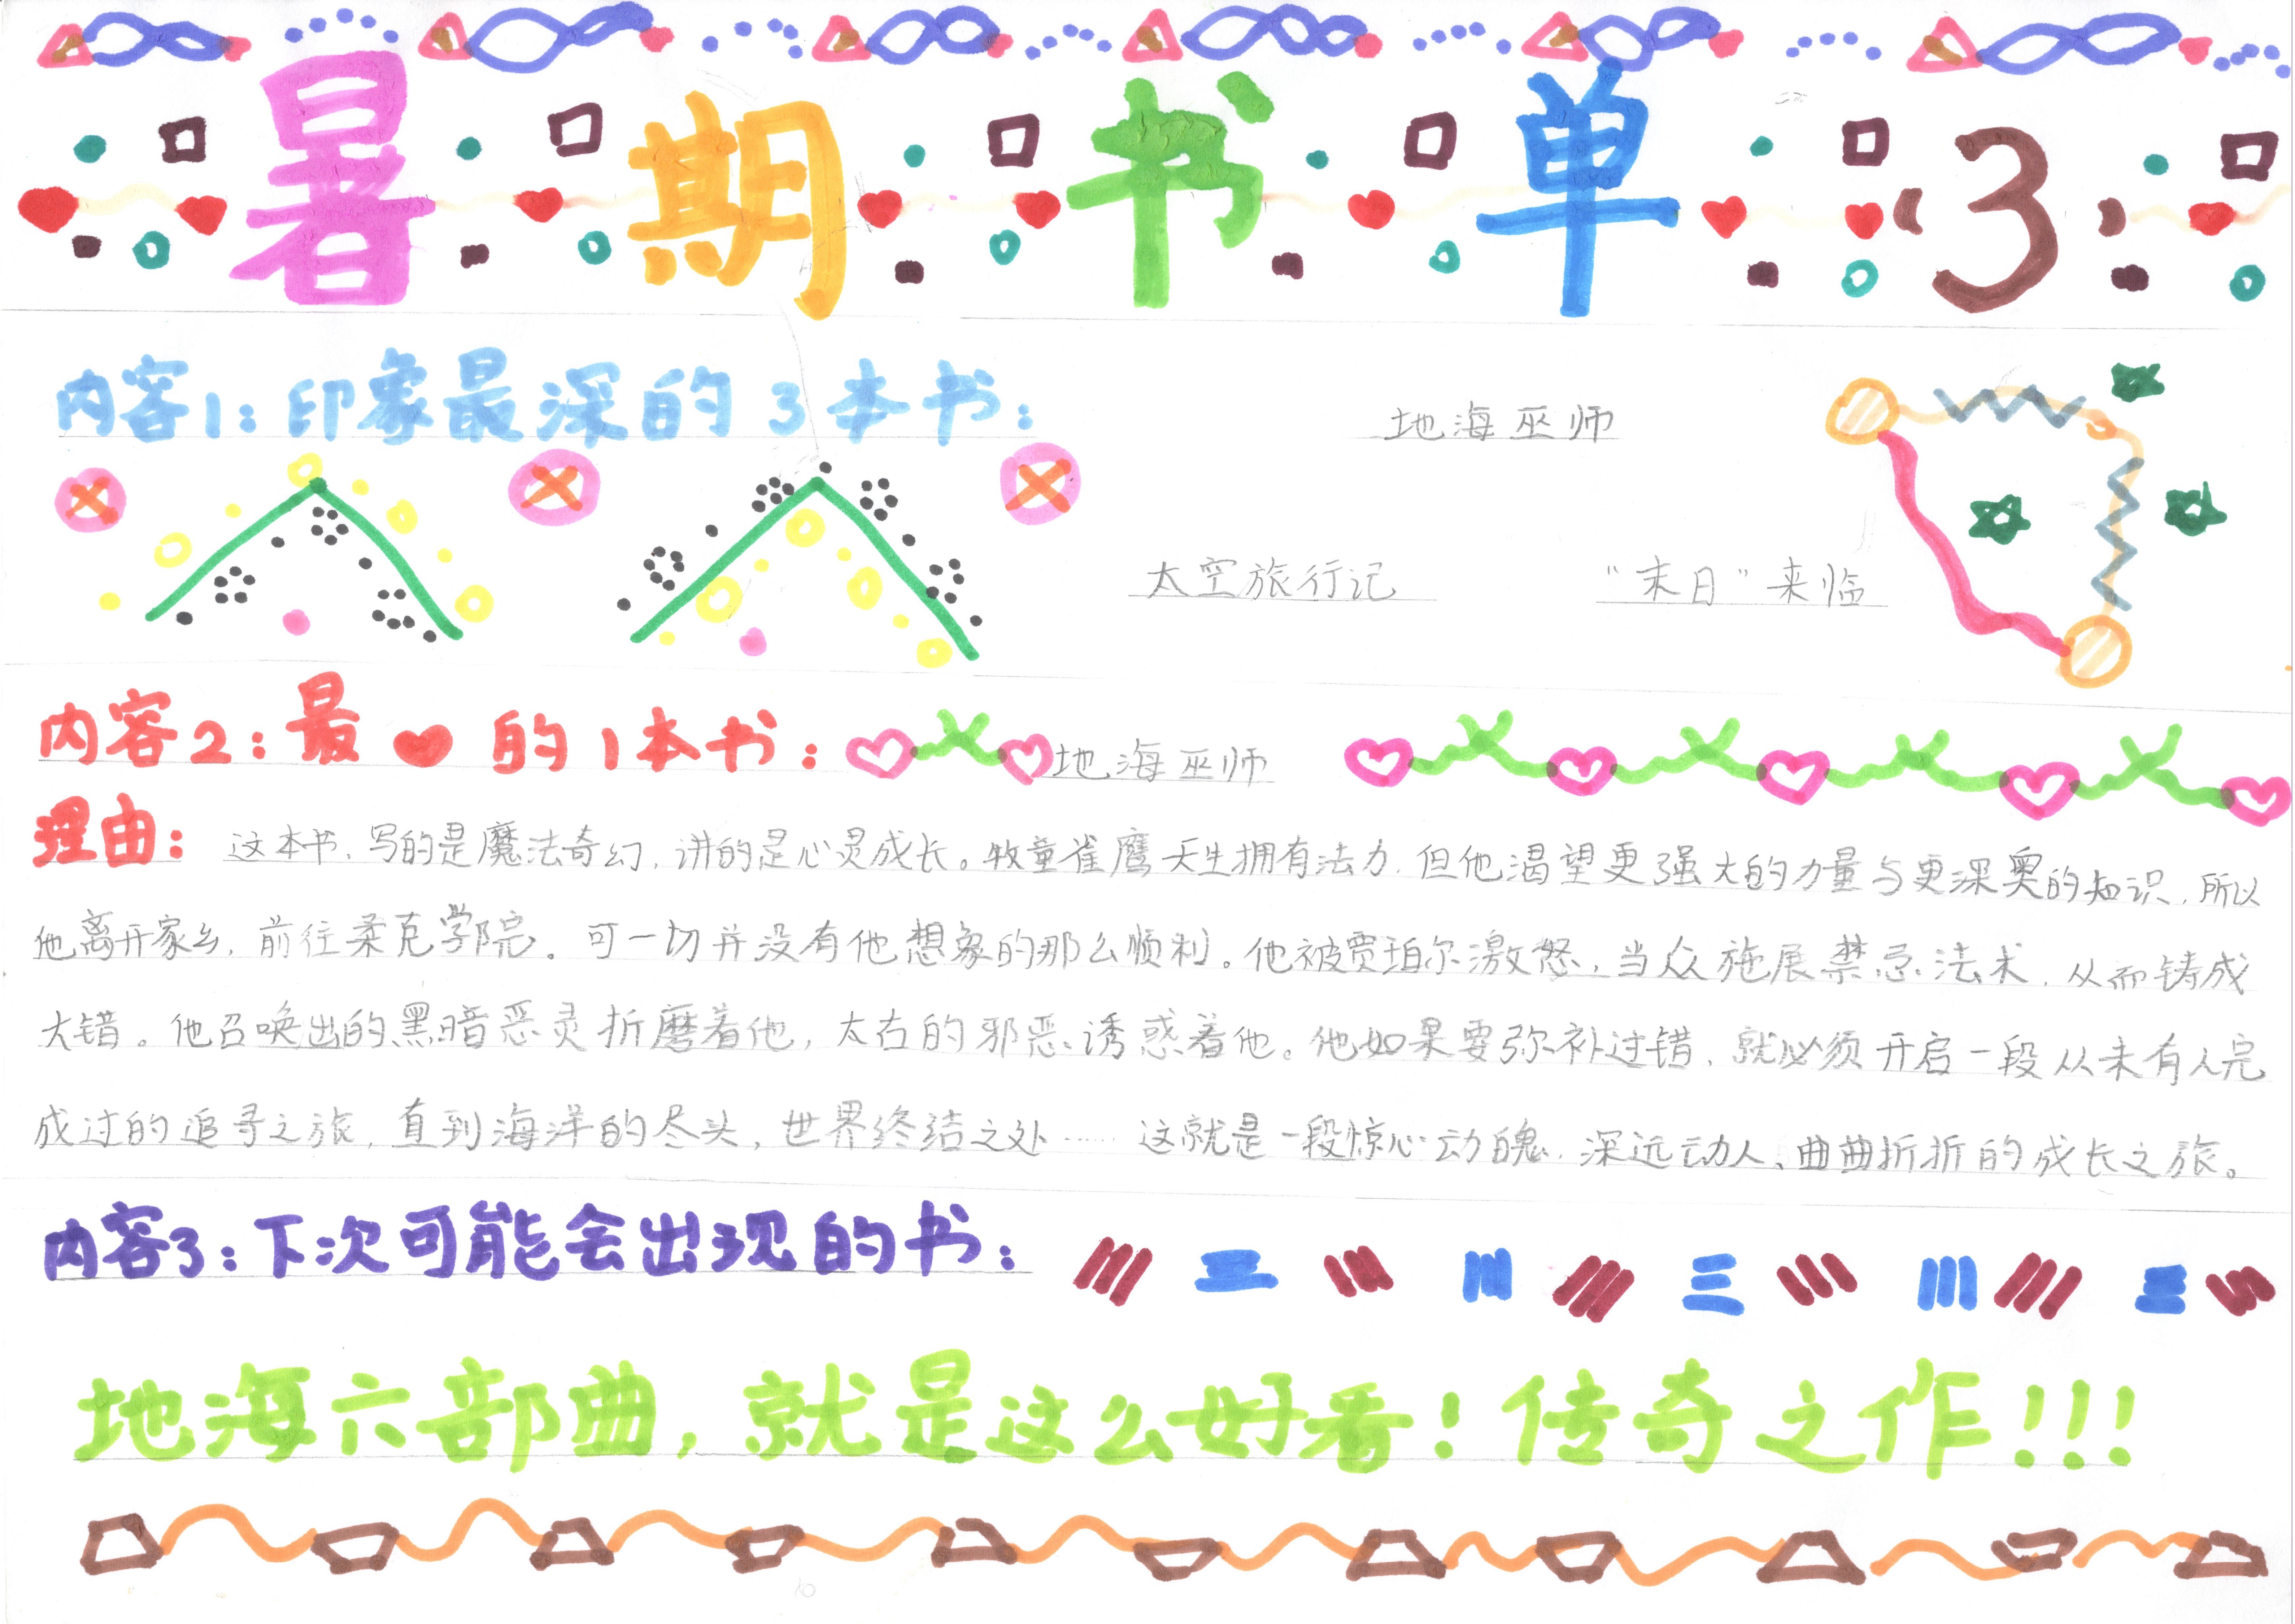 暑期书单(3)
内容1:印象最深的3本书:
地海巫师
太空旅行记 “末日”来临
内容2:最❤的1本书:地海巫师
理由:这本书,写的是魔法奇幻,讲的是心灵成长。牧童雀鹰天生拥有法力,但他渴望更强大的力量与更深奥的知识,所以
他离开家乡,前往柔克学院。可一切并没有他想象的那么顺利。他被贾珀尔激怒,当众施展禁忌法术,从而铸成
大错。他召唤出的黑暗恶灵折磨着他,太古的邪恶诱惑着他。他如果要弥补过错,就必须开启一段从未有人完
成过的追寻之旅,直到海洋的尽头,世界终结之处……这就是一段惊心动魄、深远动人、曲曲折折的成长之旅。
内容3:下次可能会出现的书:
地海六部曲,就是这么好看!传奇之作!!!